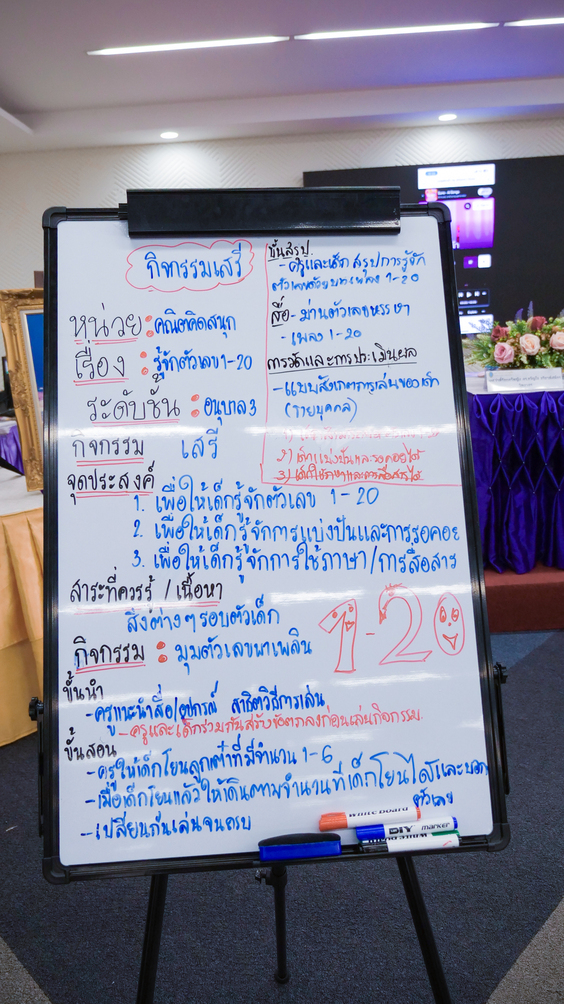 กิจกรรมเสรี
หน่วย : คณิตคิดสนุก
เรื่อง : รู้จักตัวเลข 1-20
ระดับชั้น : อนุบาล 3
กิจกรรม เสรี
จุดประสงค์
1. เพื่อให้เด็กรู้จักตัวเลข 1 - 20
2. เพื่อให้เด็กรู้จักการแบ่งปันและการรอคอย
3. เพื่อให้เด็กรู้จักการใช้ภาษา/การสื่อสาร
สาระที่ควรรู้ / เนื้อหา
สิ่งต่างๆรอบตัวเด็ก
กิจกรรม : มุมตัวเลขพาเพลิน
1-20
ขั้นนำ
- ครูแนะนำสื่อ/อุปกรณ์ สาธิตวิธีการเล่น
- ครูและเด็กร่วมกันสร้างข้อตกลงก่อนเล่นกิจกรรม
ขั้นสอน
- ครูให้เด็กโยนลูกเต๋าที่มีจำนวน 1-6
- เมื่อเด็กโยนแล้วให้เดินตามจำนวนที่เด็กโยนได้และบอก
ตัวเลข
- เปลี่ยนกันเล่นจนครบ
ขั้นสรุป
- ครูและเด็กสรุปการรู้จัก
1-20
สื่อ - ม่านตัวเลขหรรษา
- เพลง 1-20
การวัดและการประเมินผล
- แบบสังเกตการเล่นของเด็ก
(รายบุคคล)
2) เด็กแบ่งปันและรอคอยได้
3) เด็กใช้ภาษาและการสื่อสารได้
White Board
DIY marker